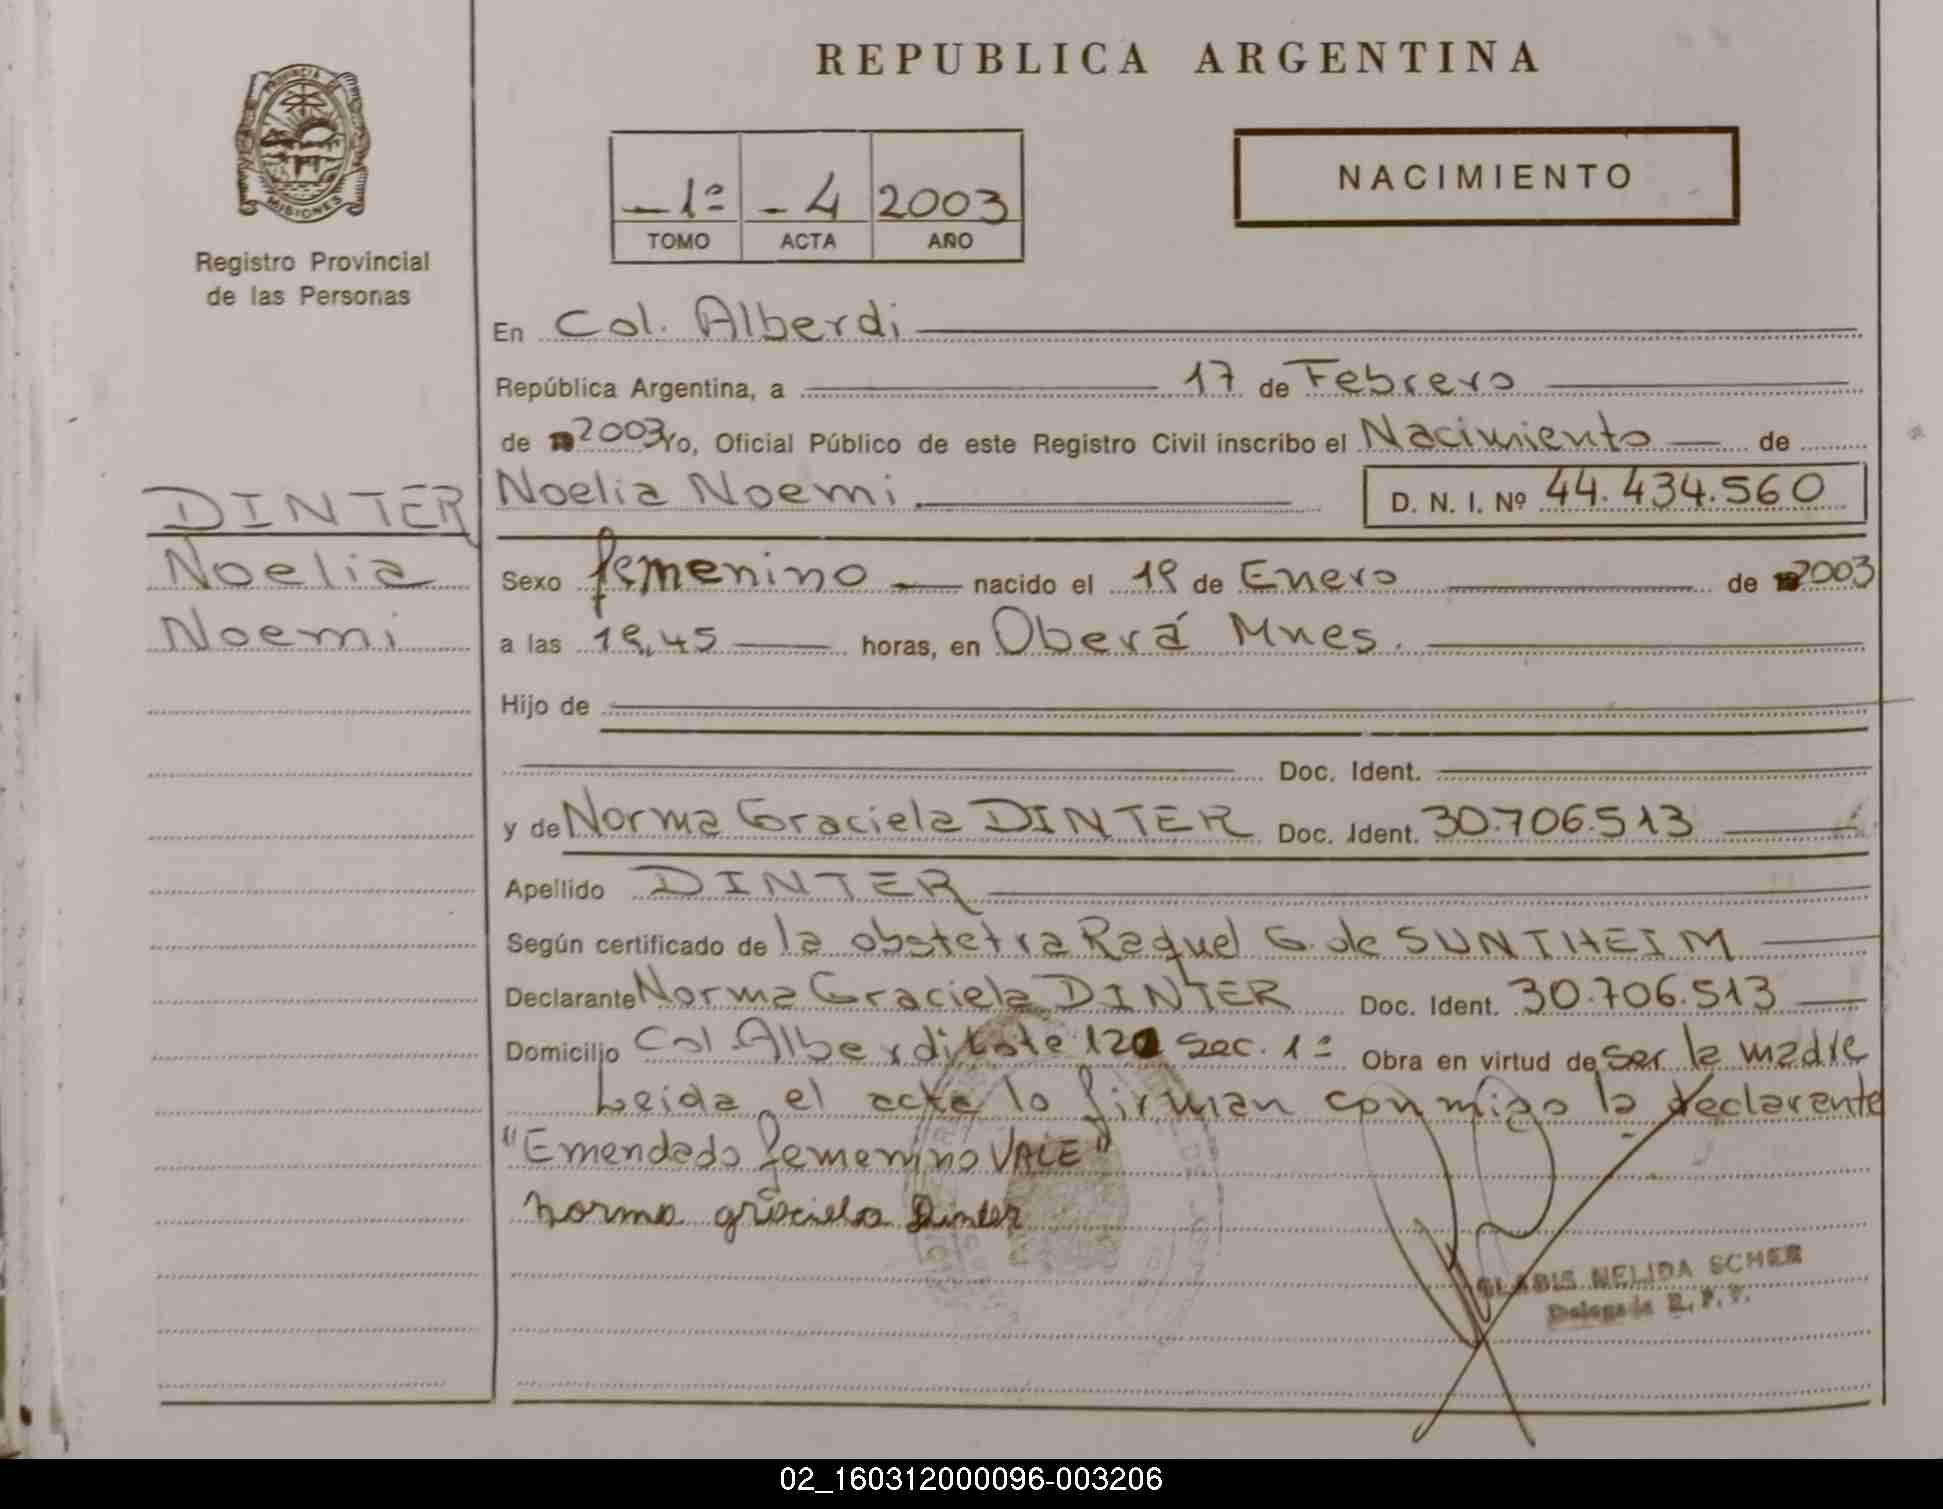 REPUBLICA ARGENTINA
PROVINCIA DE
MISIONES
Registro Provincial
de las Personas
-1ª -4 2003
TOMO ACTA AÑO
NACIMIENTO
En Col. Alberdi
República Argentina, a 17 de Febrero
de 2003 Yo, Oficial Público de este Registro Civil inscribo el Nacimiento de
DINTER
Noelia
Noemi
Noelia Noemi D. N. I. Nº 44.434.560
Sexo femenino nacido el de Enero de 2003
a las horas, en Oberá Mnes.
Hijo de
Doc. Ident.
y de Norma Graciela DINTER Doc. Ident. 30.706.513
Apellido DINTER
Según certificado de la obstetra Raquel G. de SUNTHEIM
Declarante Norma Graciela DINTER Doc. Ident. 30.706.513
Domicilio Col. Alberdi Lote Sec. 1ª Obra en virtud de ser la madre
Leida el acta lo firman conmigo la declarante
"Emendado femenino VALE"
norma graciela Dinter
GLADIS NELIDA SCHER
Delegada R. P. P.
02_160312000096-003206